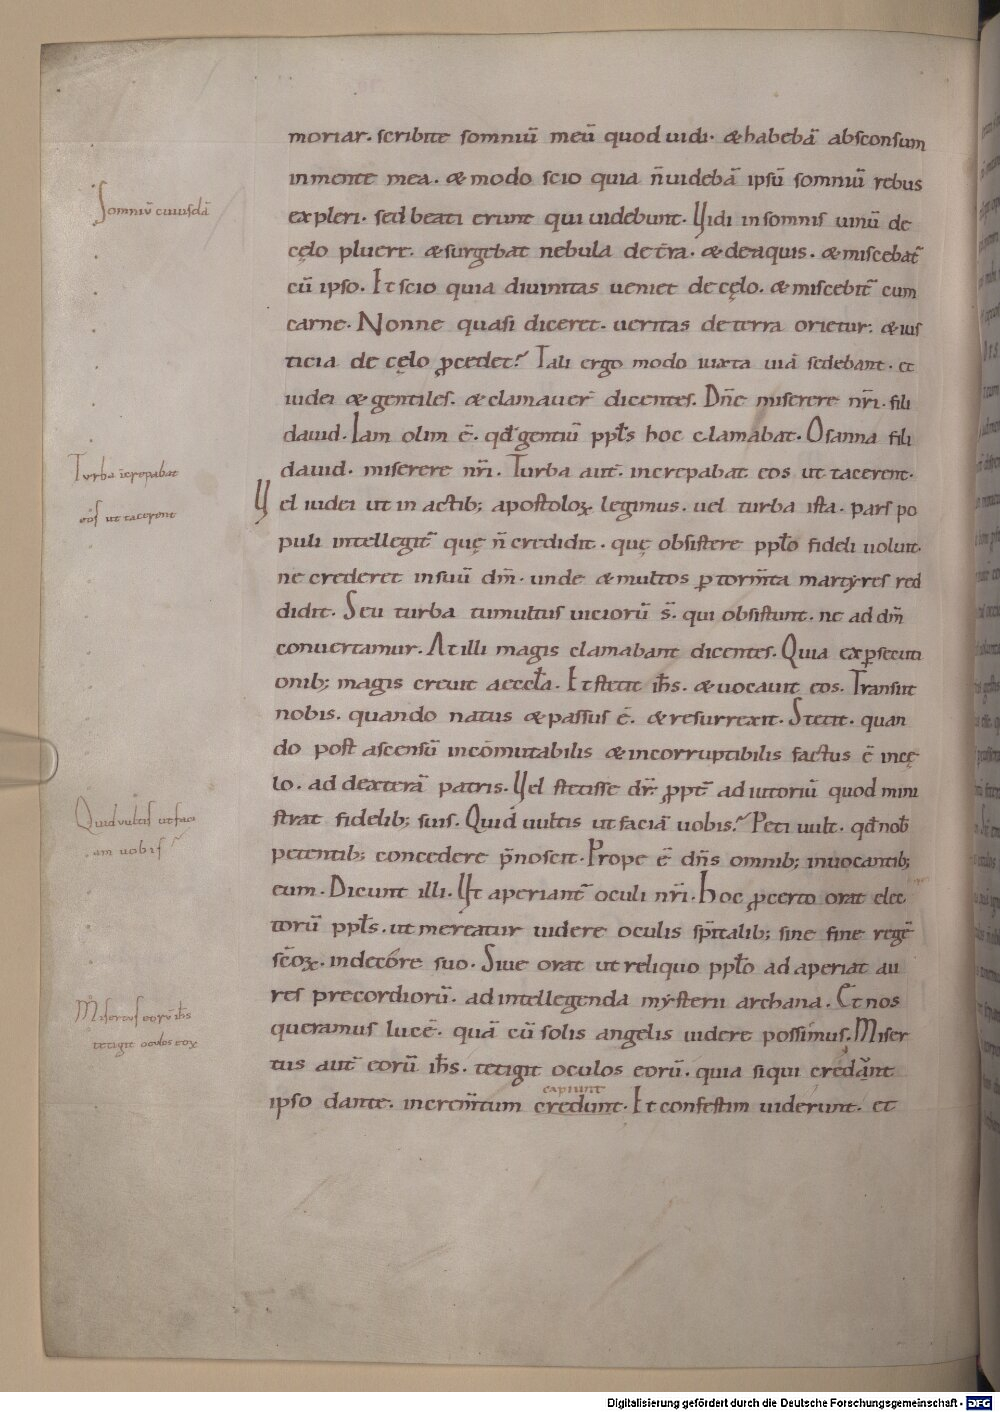 moriar. scribite somniū meū quod uidi. & habebā absconsum
Somniū cuiusdā
in mente mea. & modo scio quia n̄ uidebā ipsū somniū rebus
expleri. sed beati erunt qui uidebunt. Vidi in somnis uinū de
cęlo pluere. & surgebat nebula de t̄ra. & de aquis. & miscebat̄
cū ipso. Et scio quia diuinitas ueniet de cęlo. & miscebit̄ cum
carne. Nonne quasi diceret. ueritas de terra orietur. & ius
ticia de cęlo ꝓcedet? Tali ergo modo iuxta uiā sedebant. et
iudei & gentiles. & clamauer̄ dicentes. Dn̄e miserere nr̄i. fili
dauid. Iam olim ē. qđ gentiū pp̄ls hoc clamabat. Osanna fili
Turba īcrepabat
dauid. miserere nr̄i. Turba aut̄. increpabat eos ut tacerent.
eos ut tacerent
Vel iudei ut in actib; apostoloꝝ legimus. uel turba ista. pars po
puli intellegit̄ quę n̄ credidit. quę obsistere pp̄lo fideli uoluit.
ne crederet in suū dm̄. unde & multos ꝑ torm̄ta martyres red
didit. Seu turba tumultus uiciorū s̄. qui obsistunt. ne ad dm̄
conuertamur. At illi magis clamabant dicentes. Quia ex ꝑsecuti
onib; magis creuit aeccl̄a. Et stetit ih̄s. & uocauit eos. Transiit
nobis. quando natus & passus ē. & resurrexit. Stetit. quan
do post ascensū incōmutabilis & incorruptibilis factus ē in cę
lo. ad dexterā patris. Vel stetisse dr̄. ꝓpt̄ adiutoriū quod mini
Quid uultis ut faci
strat fidelib; suis. Quid uultis ut faciā uobis? Peti uult. qđ nob̄
am uobis
petentib; concedere p̄noscit. Prope ē dn̄s omnib; inuocantib;
eum. Dicunt illi. Vt aperiant̄ oculi nr̄i. Hoc ꝓcerto orat elec
torū pp̄ls. ut mereatur uidere oculis sp̄italib; sine fine regē
sc̄oꝝ. in decore suo. Siue orat ut reliquo pp̄lo adaperiat au
res precordiorū. ad intellegenda mysterii archana. Et nos
Misertus eorū ih̄s
queramus lucē. quā cū solis angelis uidere possimus. Miser
tetigit oculos eoꝝ
tus aut̄ eorū ih̄s. tetigit oculos eorū. quia siqui credant
capiunt
ipso dante. increm̄tum credunt. Et confestim uiderunt. et
Digitalisierung gefördert durch die Deutsche Forschungsgemeinschaft - DFG